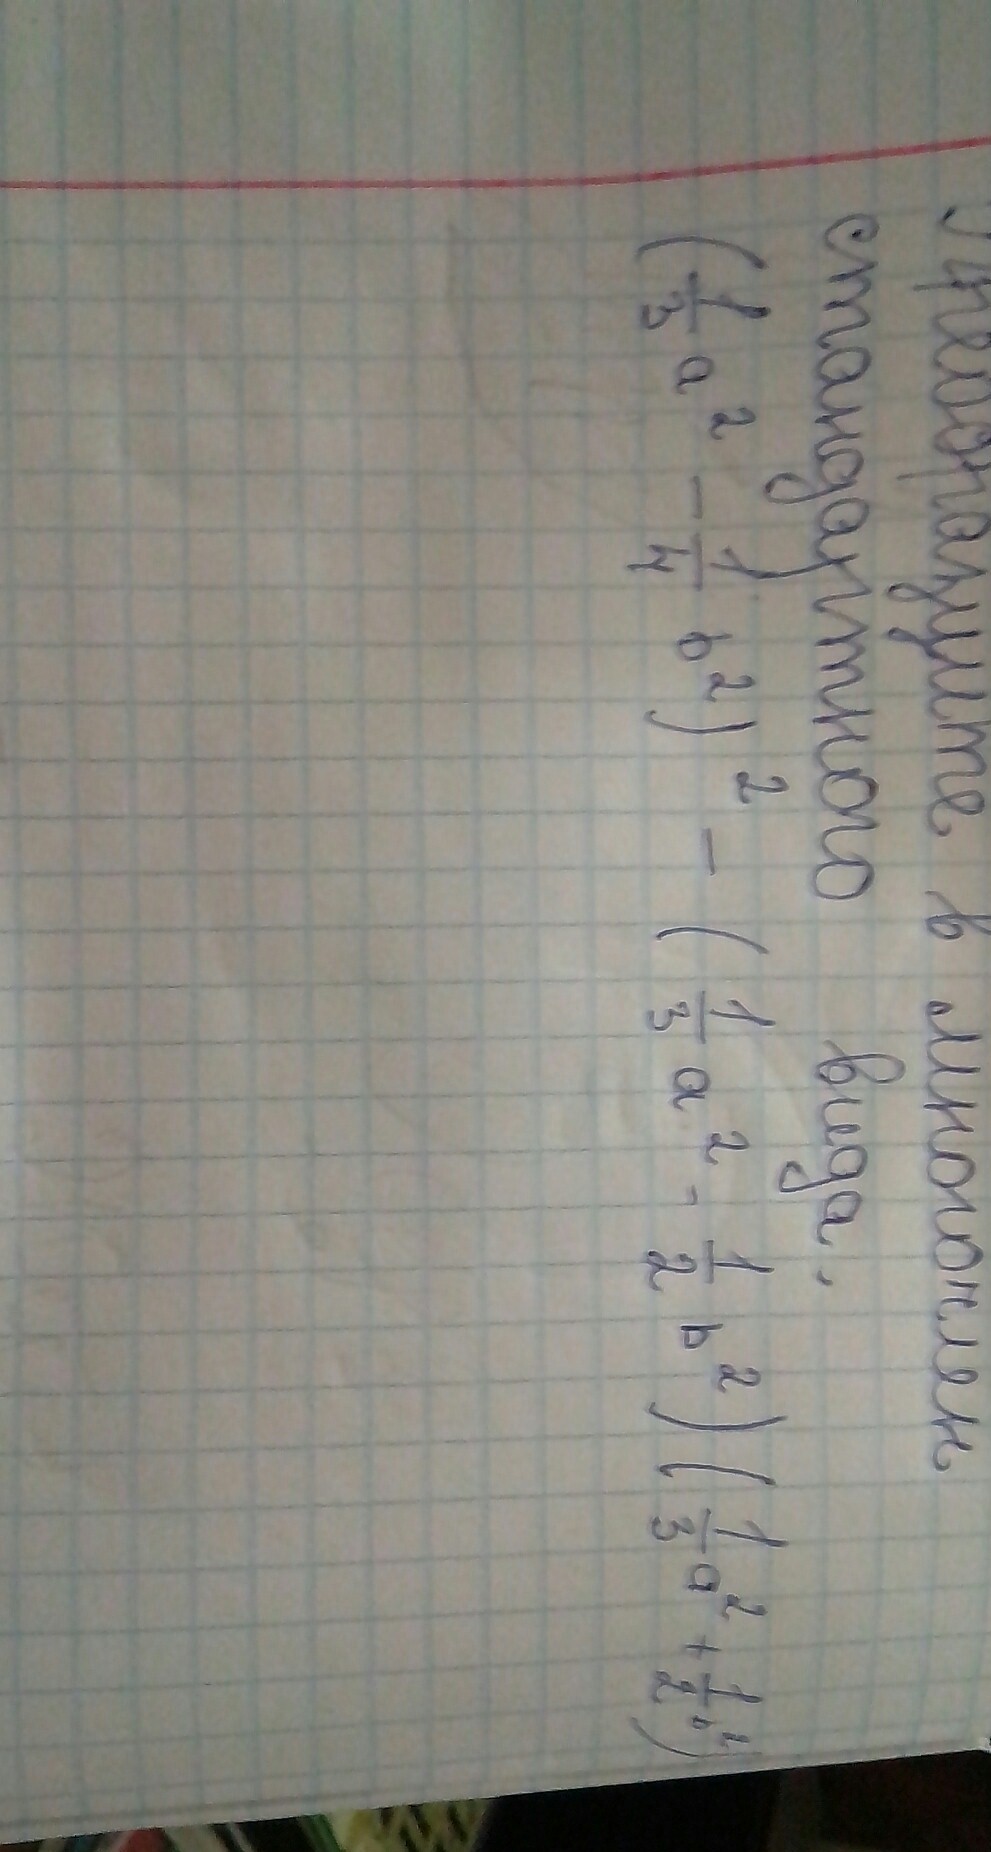 Преобразуйте в многочлен
стандартного вида.
(1/3 a² - 1/4 b²)² - (1/3 a² - 1/2 b²)(1/3 a² + 1/2 b²)